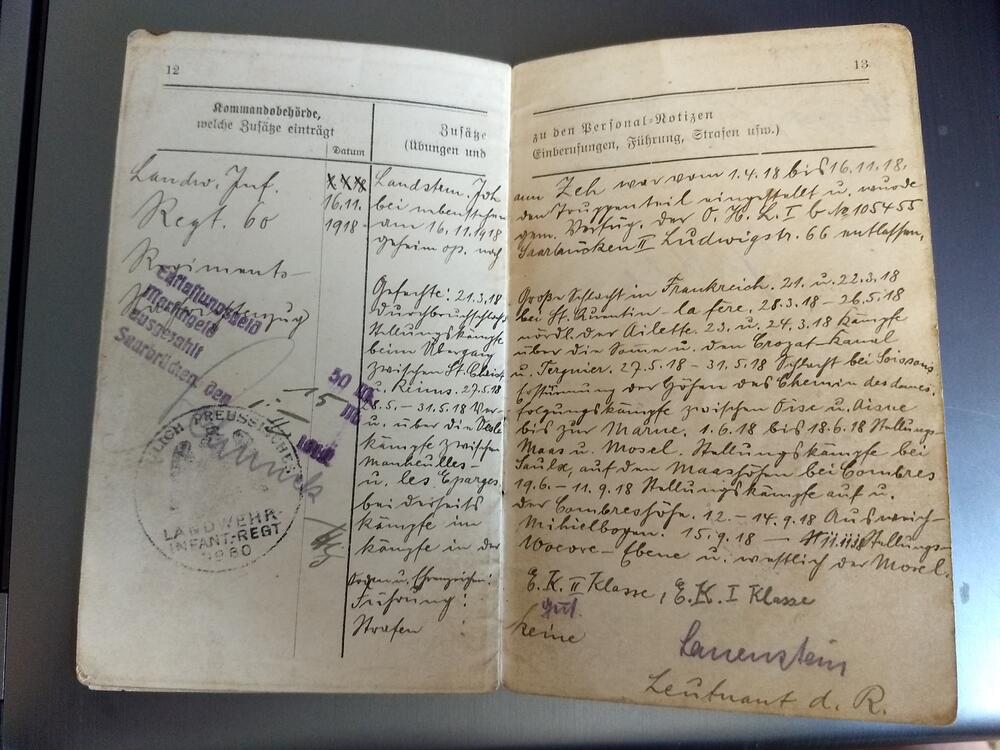 12
Kommandobehörde,
welche Zusätze einträgt
Datum
Zusätze
(Übungen und
Landw. Inf.
Regt. 60
Regiments-
XXX
16.11.
1918
Entlassungsgeld
Marschgeld
ausgezahlt
Saarbrücken, den
50 M.
15 M.
LANDWEHR-
INFANT.-REGT
Landstm. Joh
bei nebensteh
am 16.11.1918
geheim op. nach
Gefechte: 21.3.18
Durchbruchschlacht
Stellungskämpfe
beim Übergang
zwischen St. Christ
u. Reims. 27.5.18
28.5. – 31.5.18 Ver-
u. über die
kämpfe zwischen
Manheulles-
u. les Eparges
beiderseits
kämpfe im
kämpfe in der
Orden u. Ehrenzeichen:
Führung:
Strafen :
13
zu den Personal-Notizen
Einberufungen, Führung, Strafen usw.)
ann Zeh war vom 1.4.18 bis 16.11.18,
den Truppenteil eingestellt u. wurde
gem. Verfüg. der O. H. L. I b № 105455
Saarbrücken II Ludwigstr. 66 entlassen.
Große Schlacht in Frankreich. 21. u. 22.3.18
bei St. Quentin – la fère. 28.3.18 – 26.5.18
nördl. der Ailette. 23. u. 24.3.18 Kämpfe
über die Somme u. den Crozat-Kanal
u. Tergnier. 27.5.18 – 31.5.18 Schlacht bei Soissons
Erstürmung der Höhen des Chemin des dames
folgungskämpfe zwischen Oise u. Aisne
bis zur Marne. 1.6.18 bis 18.6.18 Stellungs-
Maas u. Mosel. Stellungskämpfe bei
Saulx, auf den Maashöhen bei Combres
19.6. – 11.9.18 Stellungskämpfe auf u.
der Combreshöhe. 12. – 14.9.18 Ausweich-
Mihielbogen. 15.9.18 – 11.11.18 Stellungs-
Woevre-Ebene u. westlich der Mosel.
E. K. II Klasse, E. K. I Klasse
gut.
keine
Lauenstein
Leutnant d. R.